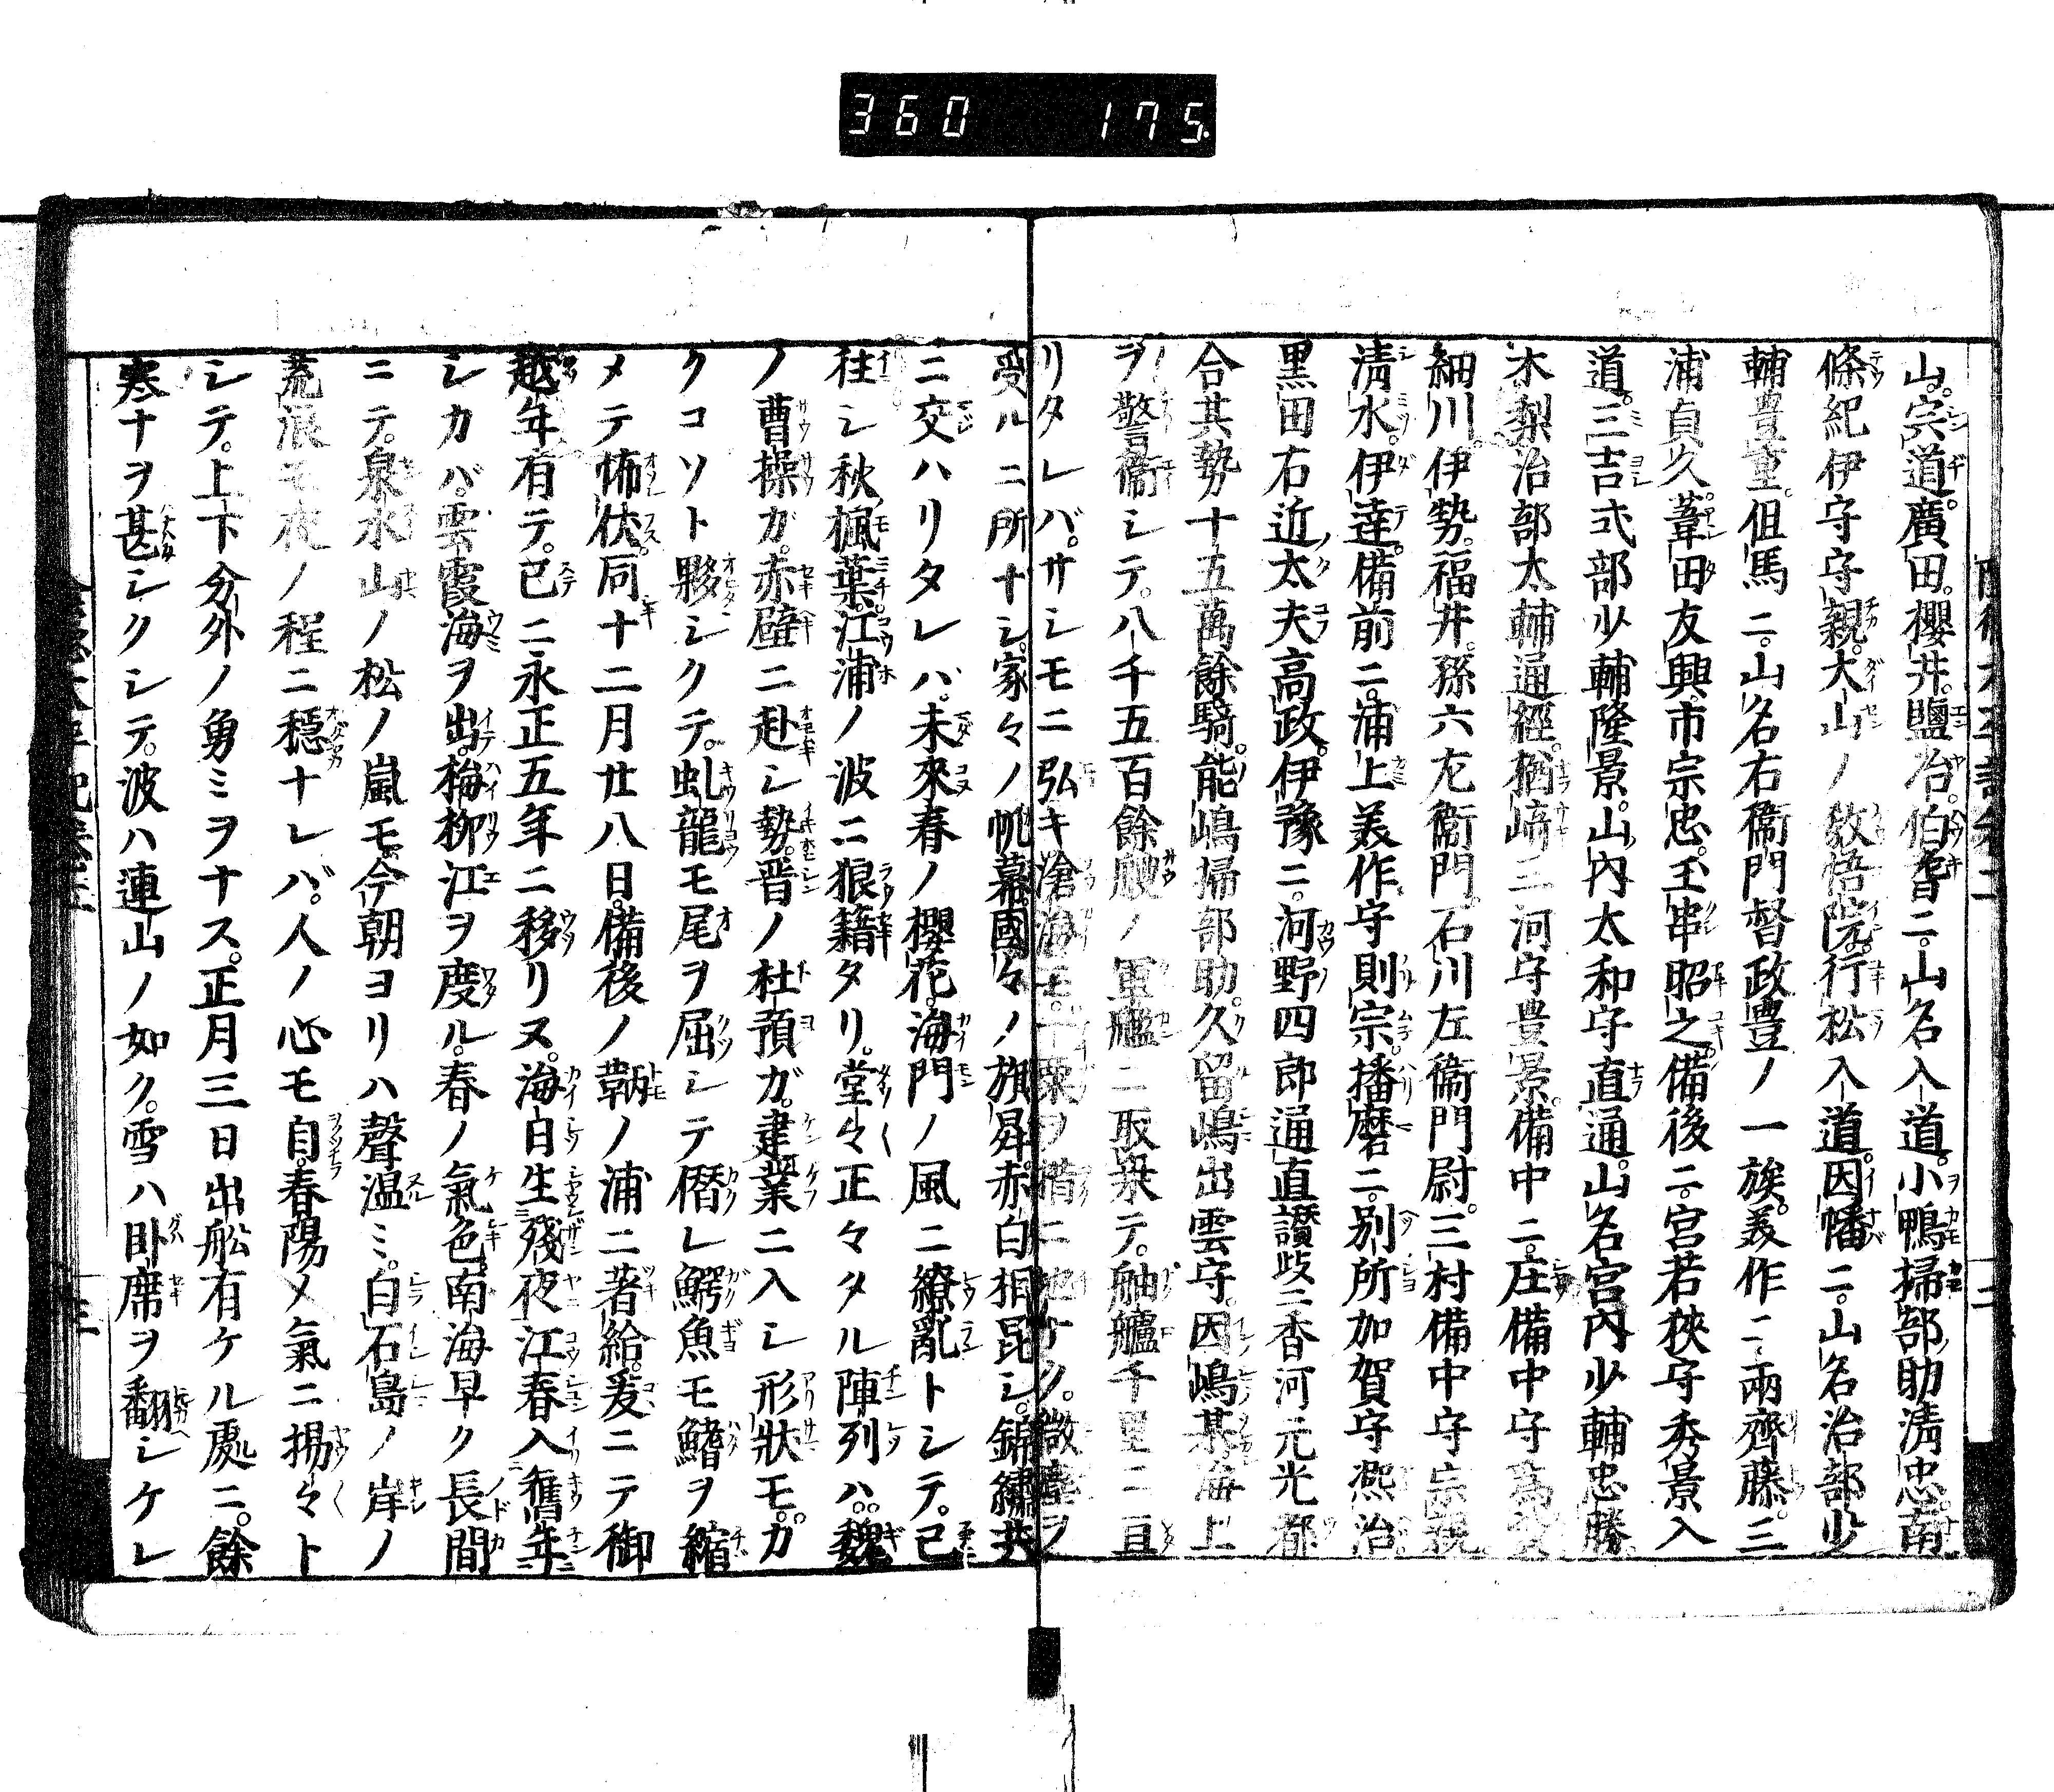 360 175.
山。宍道。廣田。櫻井。鹽冶。伯耆ニ。山名入道。小鴨掃部助淸忠。南
條紀伊守守親。大山ノ敎悟院。行松入道。因幡ニ。山名治部少
輔豊重。但馬ニ。山名右衞門督政豊ノ一族。美作ニ。兩齊藤。三
浦貞久。葦田友興。市宗忠。玉串昭之。備後ニ。宮若狹守秀景入
道。三吉式部少輔隆景。山內太和守直通。山名宮內少輔忠勝。
木梨治部太輔通經。楢﨑三河守豊景。備中ニ。庄備中守爲
細川。伊勢。福井。孫六左衞門。石川左衞門尉。三村備中守宗親。
淸水。伊達。備前ニ。浦上美作守則宗。播磨ニ。別所加賀守凞治。
黒田右近太夫高政。伊豫ニ。河野四郎通直。讃歧ニ香河元光。都
合其勢十五萬餘騎。能嶋掃部助。久留嶋出雲守。因嶋某。海上
ヲ警衞シテ。八千五百餘艘ノ軍艦ニ取乘テ。舳艫千里ニ亘
リタレバ。サシモニ弘キ滄海モ。一粟ヲ積ニ地ナク。微塵ヲ
受ルニ所ナシ。家々ノ帆幕。國々ノ旗昇。赤白相昆シ。錦繡共
ニ交ハリタレハ。未來春ノ櫻花。海門ノ風ニ繚亂トシテ。已
徃シ秋楓葉。江浦ノ波ニ狼籍タリ。堂々正々タル陣列ハ。魏
ノ曹操ガ。赤壁ニ赴シ勢。晋ノ杜預ガ。建業ニ入シ形狀モ。カ
クコソト夥シクテ。虬龍モ尾ヲ屈シテ潛レ鰐魚モ鰭ヲ縮
メテ怖伏ス。同十二月廿八日。備後ノ鞆ノ浦ニ著給。爰ニテ御
越年有テ。已ニ永正五年ニ移リヌ。海白生殘夜江春入舊年
シカバ。雲霞海ヲ出。梅柳江ヲ度ル。春ノ氣色。南海早ク長間
ニテ。泉水山ノ松ノ嵐モ。今朝ヨリハ聲温ミ。白石島ノ岸ノ
荒浪モ夜ノ程ニ穩ナレバ。人ノ心モ自。春陽メ氣ニ揚々ト
シテ。上下分外ノ勇ミヲナス。正月三日出舩有ケル處ニ。餘
寒ナヲ甚シクシテ。波ハ連山ノ如ク。雪ハ卧席ヲ翻シケレ